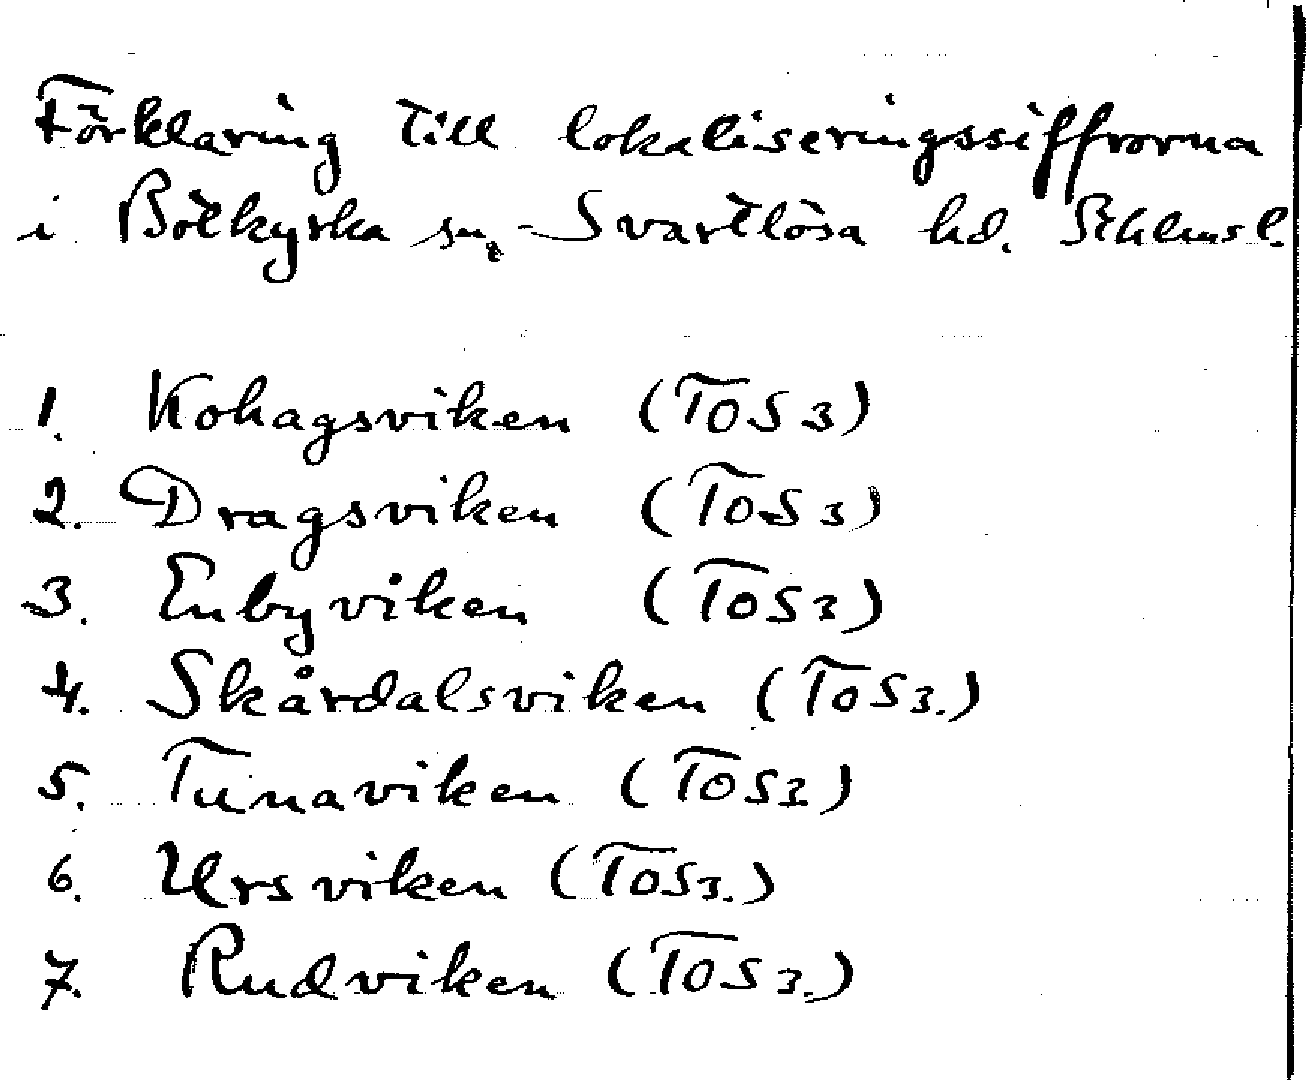 Förklaring till lokaliseringssiffrorna
i Botkyrka sn, Svartlösa hd. Sthlms l.
1. Kohagsviken (TOS3)
2. Dragsviken (TOS3)
3. Enbyviken (TOS3)
4. Skårdalsviken (TOS3.)
5. Tunaviken (TOS3)
6. Ursviken (TOS3.)
7. Rudviken (TOS3.)